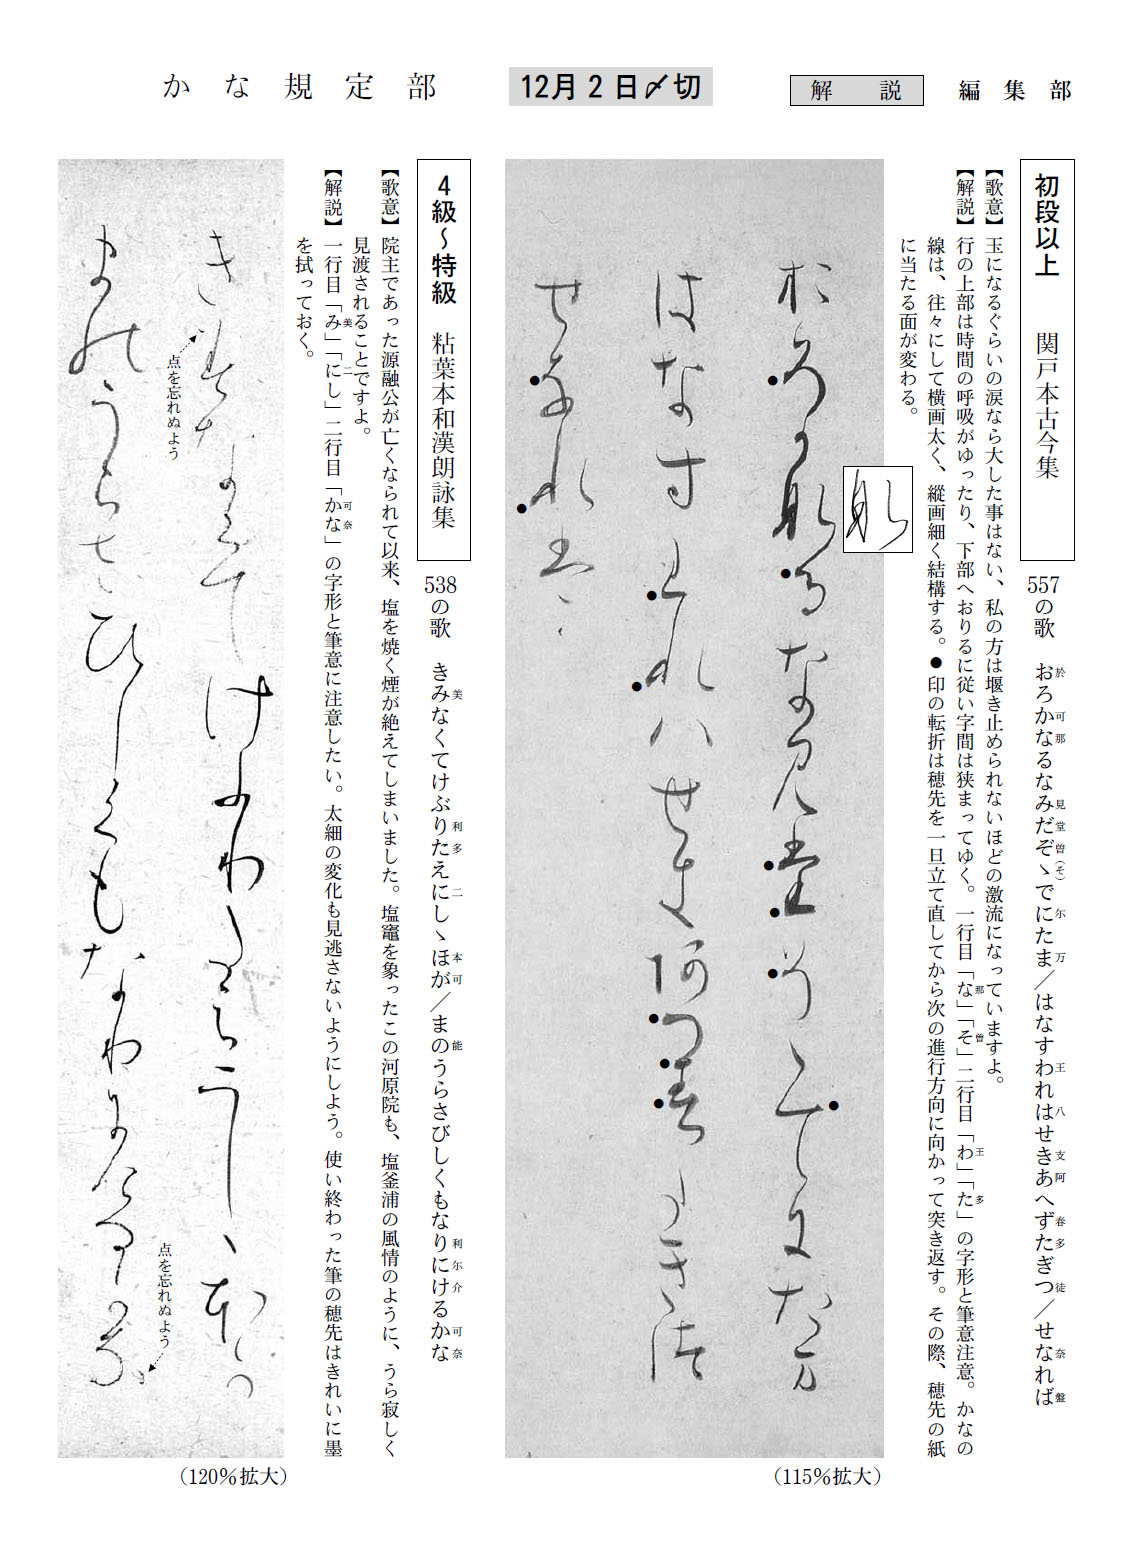 かな規定部
12月2日〆切
解説
編集部
初段以上 関戸本古今集
557の歌 おろかなるなみだぞゝでにたま／はなすわれはせきあへずたぎつ／せなれば
於 可 那 見 堂 曽（そ） 尓 万 王 八 支 阿 春 多 徒 奈 盤
【歌意】玉になるぐらいの涙なら大した事はない、私の方は堰き止められないほどの激流になっていますよ。
【解説】行の上部は時間の呼吸がゆったり、下部へおりるに従い字間は狭まってゆく。一行目「な」「そ」二行目「わ」「た」の字形と筆意注意。かなの
那 曽 王 多
線は、往々にして横画太く、縦画細く結構する。●印の転折は穂先を一旦立て直してから次の進行方向に向かって突き返す。その際、穂先の紙
に当たる面が変わる。
於ろ可那るな見堂曽ゝてにた万
はなす王れ八せ支阿へ春多きつ
せ奈れ盤
那
（115％拡大）
4級～特級 粘葉本和漢朗詠集
538の歌 きみなくてけぶりたえにしゝほが／まのうらさびしくもなりにけるかな
美 利 多 二 本 可 能 利 尓 介 可 奈
【歌意】院主であった源融公が亡くなられて以来、塩を焼く煙が絶えてしまいました。塩竈を象ったこの河原院も、塩釜浦の風情のように、うら寂しく
見渡されることですよ。
【解説】一行目「み」「にし」二行目「かな」の字形と筆意に注意したい。太細の変化も見逃さないようにしよう。使い終わった筆の穂先はきれいに墨
美 二 可 奈
を拭っておく。
き美なくてけふ利多え二しゝ本可
点を忘れぬよう
ま能うらさひしくもな利尓介る可奈
点を忘れぬよう
（120％拡大）